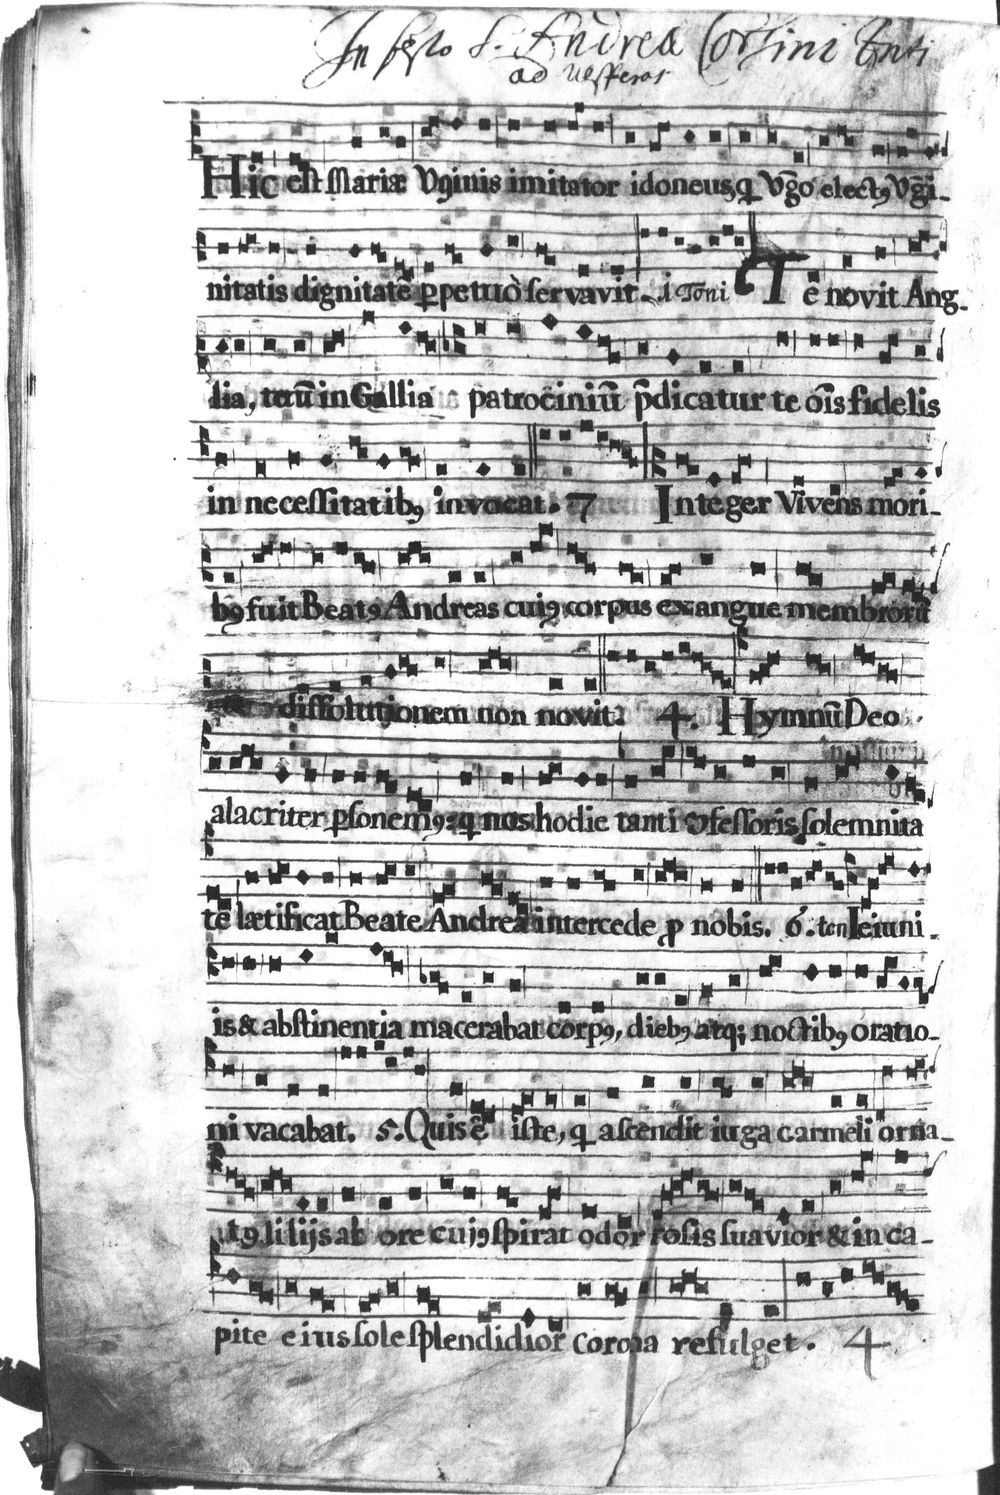 In festo S. Andreæ Corsini Anti
ad vesperas
Hic est Mariæ Vginis imitator idoneus, q Vgo elect9 Vgi-
nitatis dignitatē ꝑpetuò servavit. 1 Toni Te novit Ang-
lia, tuū in Gallia patrociniū p̄dicatur te oīs fidelis
in necessitatib9 invocat. 7 Integer Vivens mori-
b9 fuit Beat9 Andreas cui9 corpus exangue membrorū
dissolutionem non novit. 4. Hymnū Deo
alacriter ꝑsonem9: q nos hodie tanti ꝯfessoris solemnita
te lætificat Beate Andrea intercede ꝓ nobis. 6. ten Ieiuni-
is & abstinentia macerabat corp9, dieb9 atq; noctib9 oratio-
ni vacabat. 5. Quis ē iste, q ascendit iuga carmeli orna-
t9 lilijs ab ore cuj9 spirat odor rosis suavior & in ca-
pite eius sole splendidior corona refulget. 4